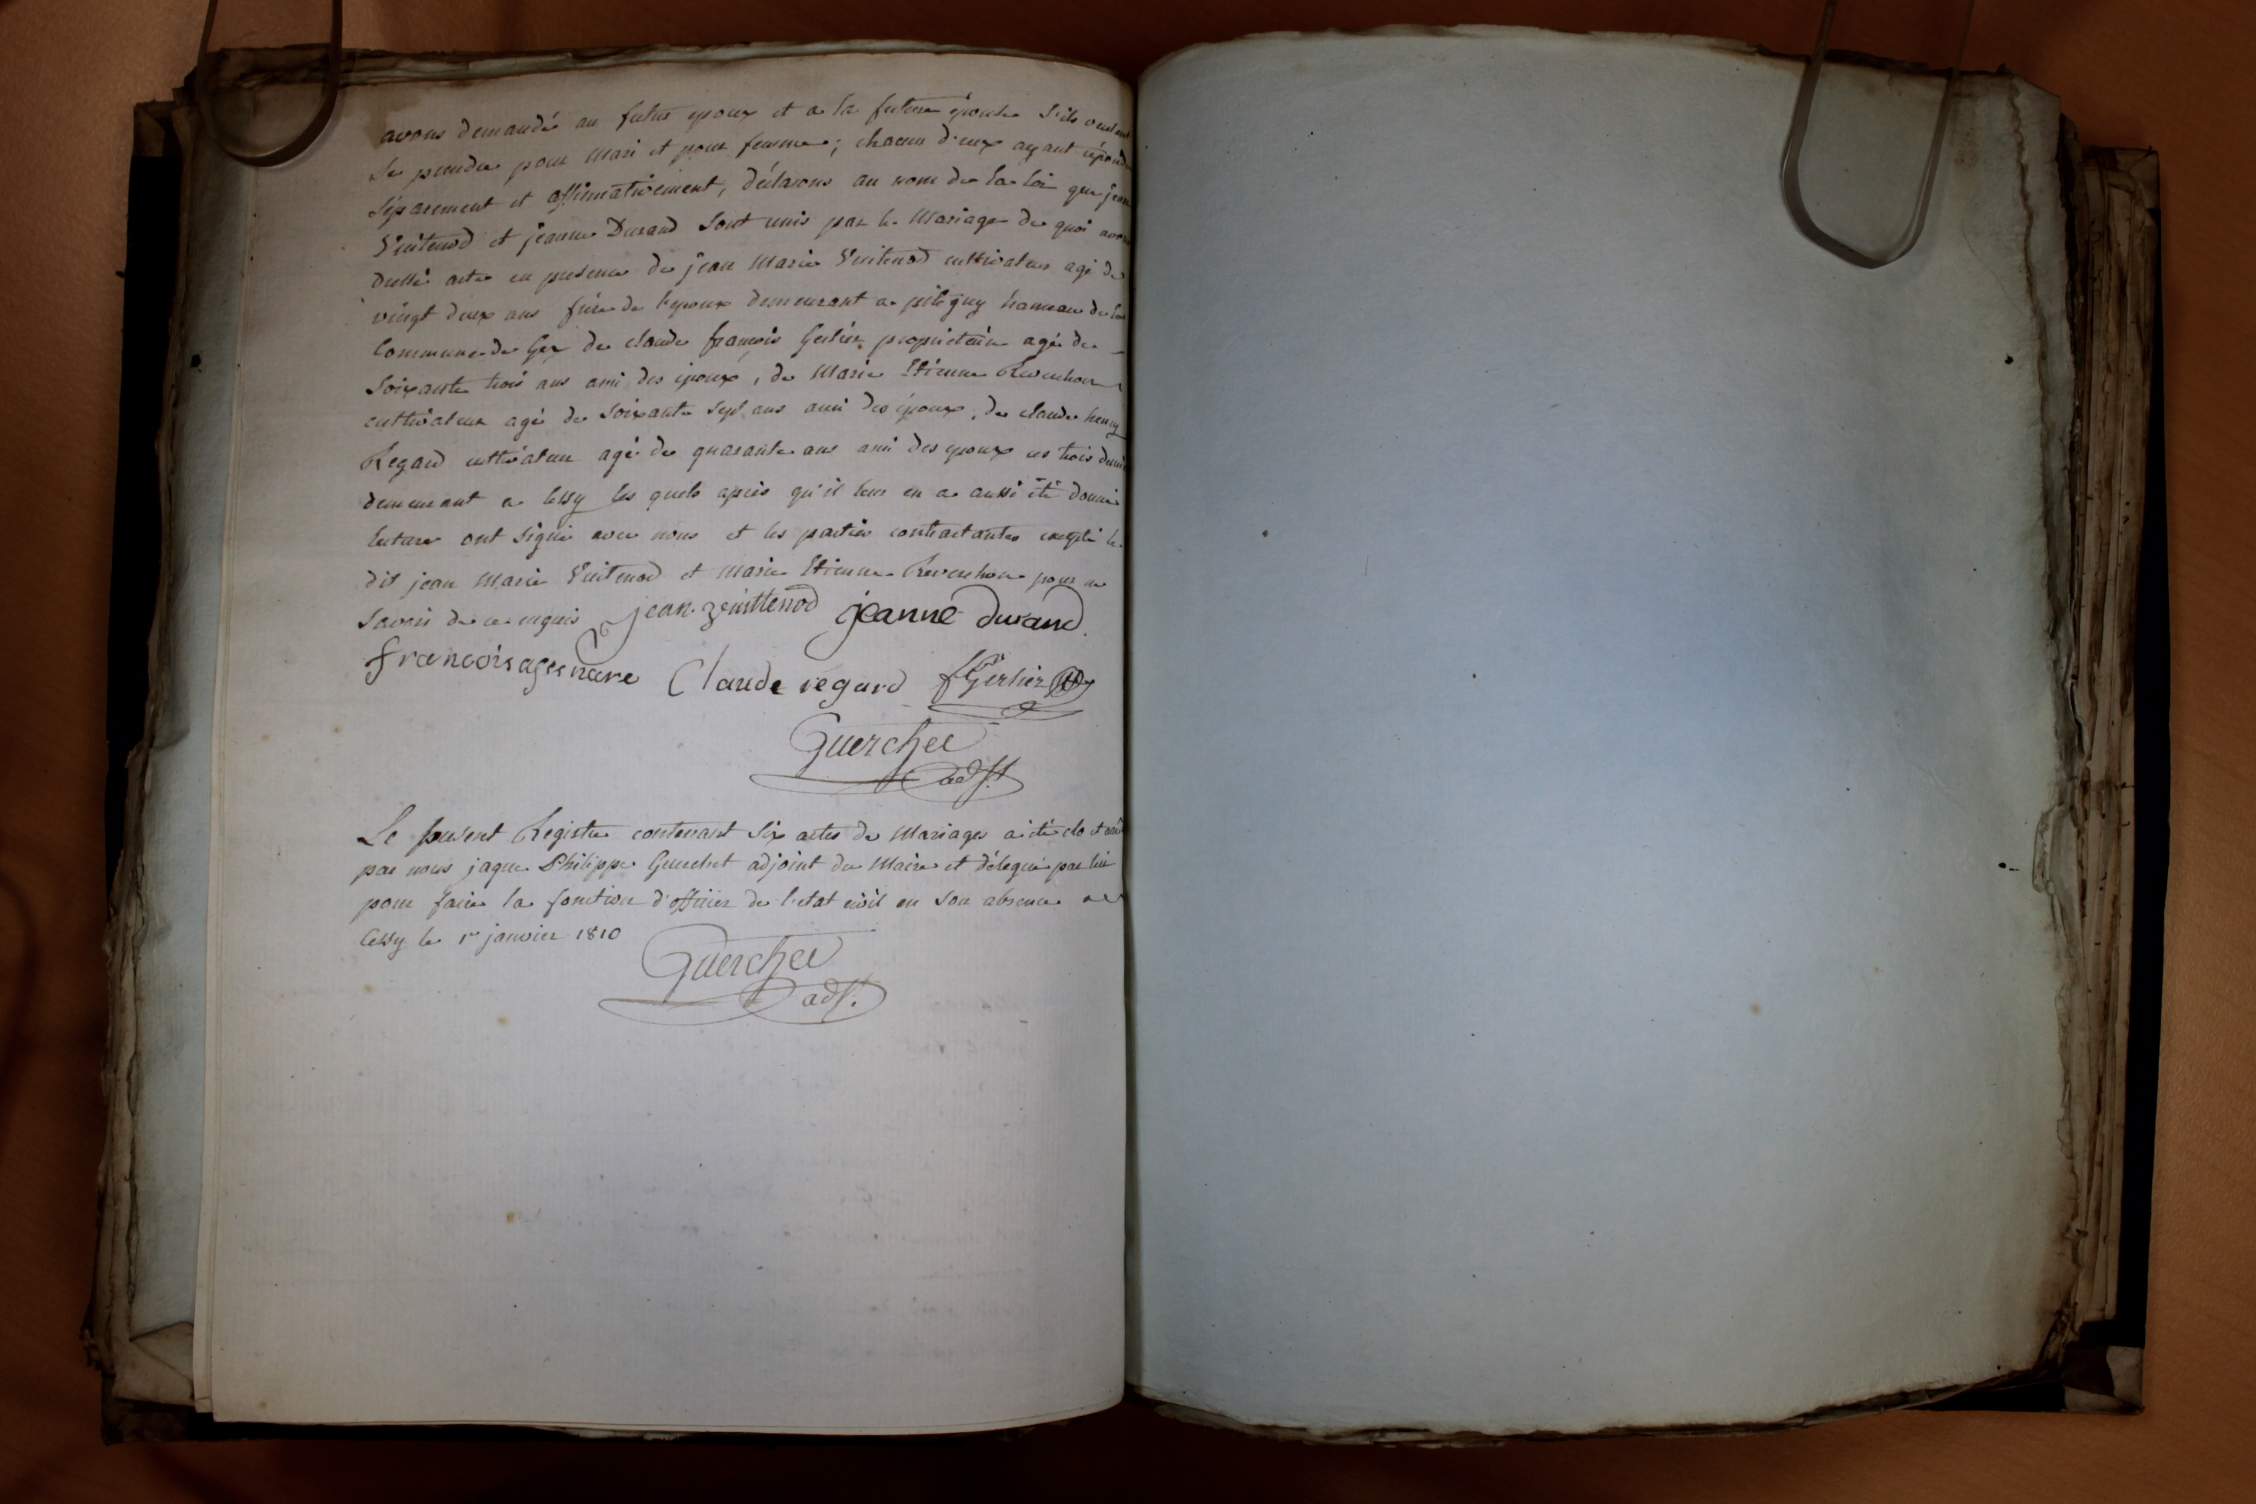 avons demandé au futur epoux et a la future épouse s'ils veulent
se prendre pour mari et pour femme; chacun d'eux ayant répondu
séparement et affirmativement, déclarons au nom de la loi que jean
Vuitenod et jeanne Durand sont unis par le Mariage de quoi avons
dressé acte en presence de jean Marie Vuitenod cultivateur agé de
vingt deux ans frère de l'epoux demeurant a pitegny hameau de la
Commune de Gex de claude françois Gerlier proprietaire agé de
soixante trois ans ami des époux, de Marie Etienne Reverchon
cultivateur agé de soixante sept ans ami des époux, de claude henry
Regard cultivateur agé de quarante ans ami des epoux ces trois
demeurant a Cessy les quels après qu'il leur en a aussi été donné
lecture ont signé avec nous et les parties contractantes excepté le
dit jean Marie Vuitenod et Marie Etienne Reverchon pour ne
savoir de ce requis jean vuittenod jeanne durand
francois Claude regard f Gerlier
Guerchet
adjt
Le present Registre contenant six actes de Mariages a été clo et
par nous jaque Philippe Guerchet adjoint du Maire et délegué par lui
pour faire la fonction d'officier de l'etat civil en son absence a
Cessy le 1er janvier 1810
Guerchet
adjt.